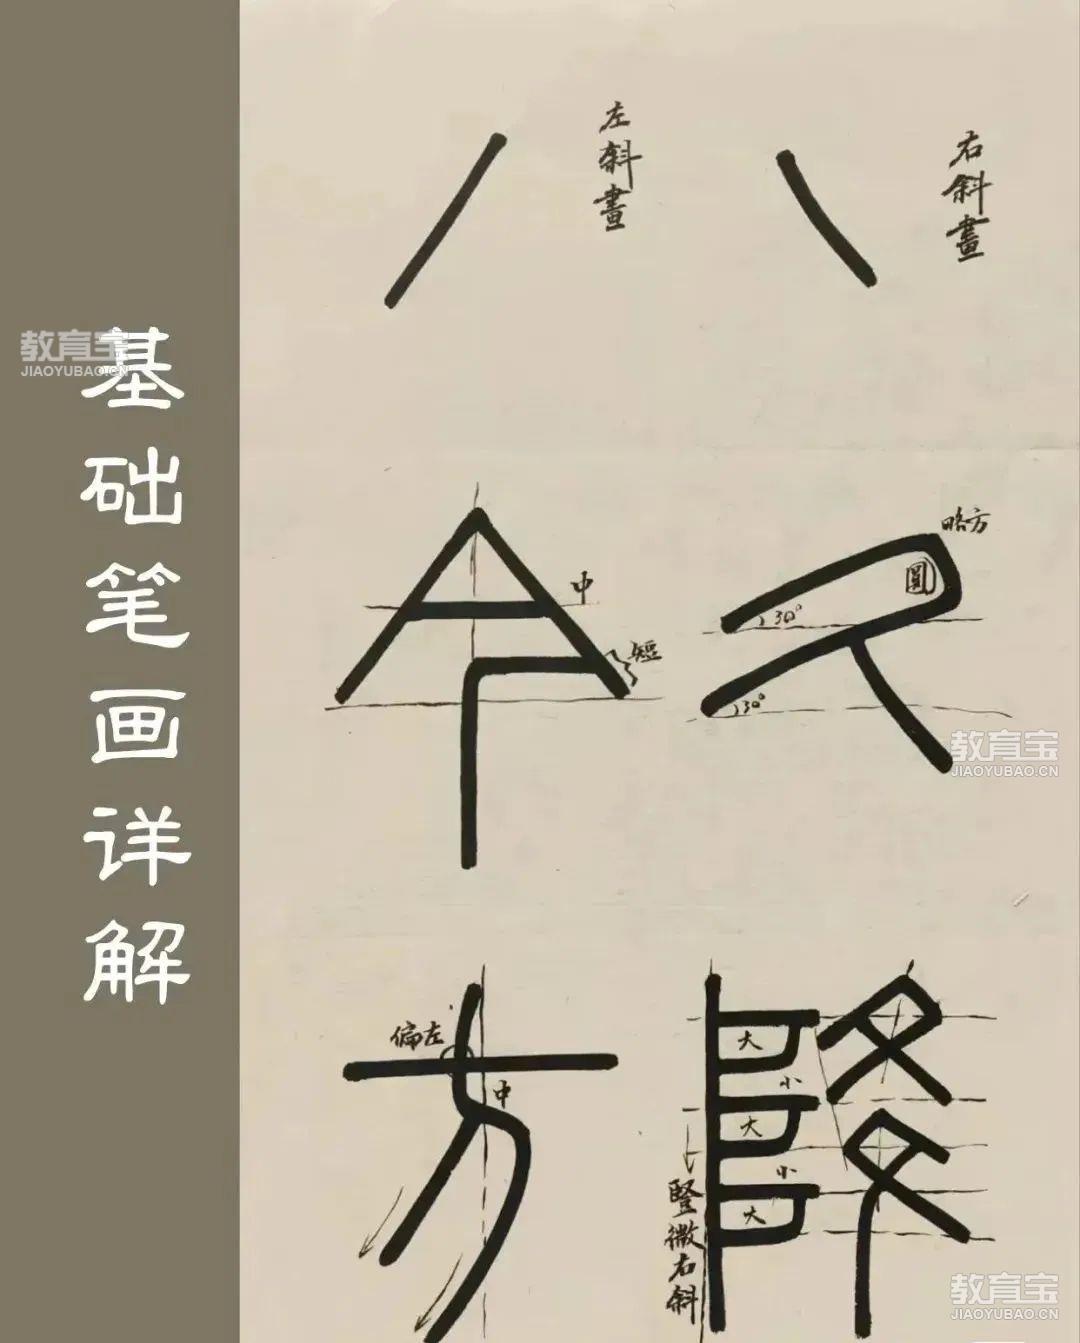 基础笔画详解
教育宝
JIAOYUBAO.CN
左斜畫
右斜畫
中
短
略方
圓
30°
30°
教育宝
JIAOYUBAO.CN
偏左
中
大
小
大
小
大
豎微右斜
教育宝
JIAOYUBAO.CN